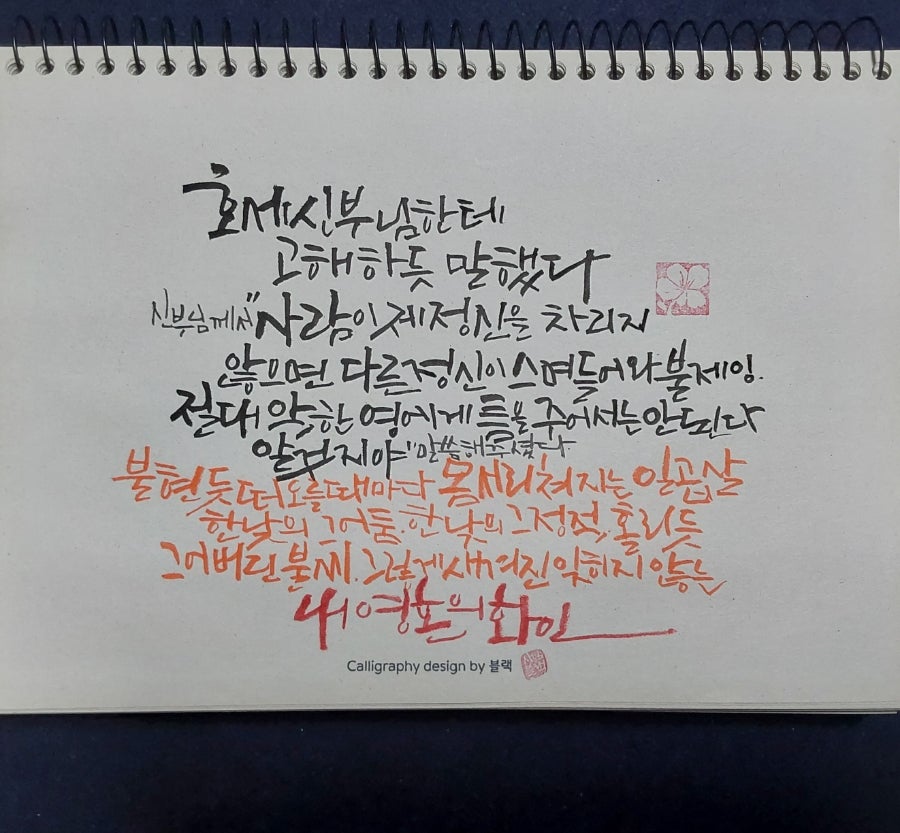 호세신부님한테
고해하듯 말했다
신부님께서 "사람이 제정신을 차리지
않으면 다른정신이 스며들어와 불제잉.
절대 악한 영에게 틈을 주어서는 안된다
알겄지야" 말씀해주셨다
불현듯 떠오를때마다 몸서리쳐지는 일곱살
한낮의 그 어둠. 한낮의 그 정적. 홀리듯
그어버린 불찌. 그렇게 새겨진 잊히지 않는
내 영혼의 화인
Calligraphy design by 블랙